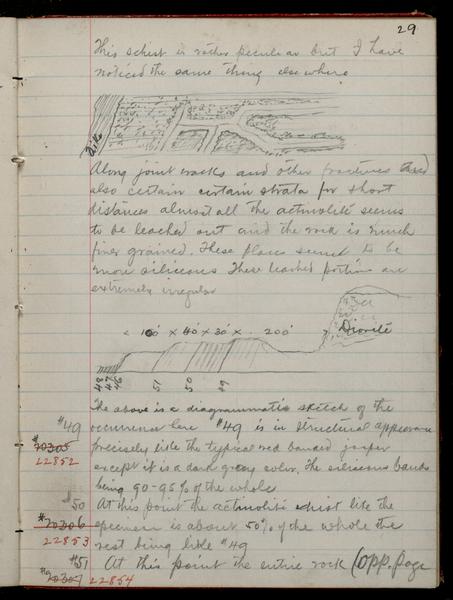 29
This schist is rather peculiar but I have
noticed the same thing elsewhere
Along joint cracks and other fractures and
also certain certain strata for short
distances almost all the actinolite seems
to be leached out and the rock is much
finer grained. These places seemed to be
more siliceous These leached portions are
extremely irregular
100' × 40' × 30' × 200'
Diorite
48 47 46 51 50 49
The above is a diagrammatic sketch of the
#49 occurrence here #49 is in structural appearance
#20305 precisely like the typical red banded jasper
22852 except it is a dark grey color. The siliceous bands
being 90-95% of the whole
#50 At this point the actinolite schist like the
#20306 specimen is about 50% of the whole the
22853 rest being like #49
#51 At this point the entire rock (opp. page
#20307 22854